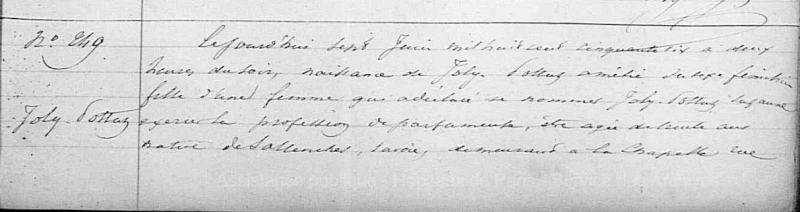 No 249
Joly-Pottuz
Cejourd'hui sept Juin mil huit cent cinquante six à deux
heures du soir, naissance de Joly-Pottuz Amélie du sexe féminin
fille d'une femme qui a déclaré se nommer Joly-Pottuz Suzanne
exercer la profession de parfumeuse, être agée de trente ans
native de Sallenches, Savoie, demeurant à la Chapelle rue